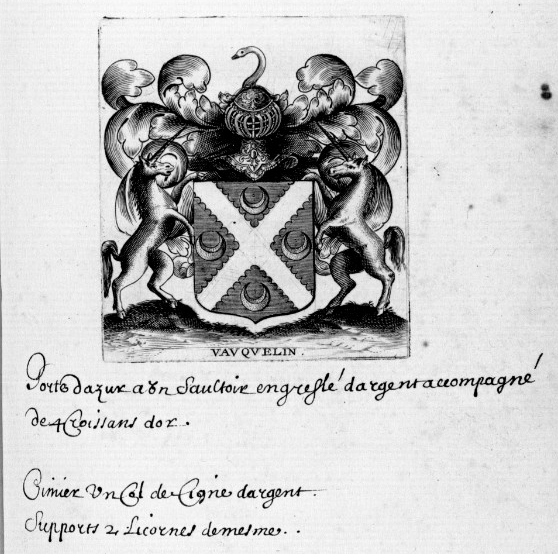 VAVQVELIN.
Porte dazur a Vn Saultoir engreslé dargent accompagné
de 4 Croissans dor.
Cimier Vn Col de Cigne dargent.
Supports 2 Licornes demesme..